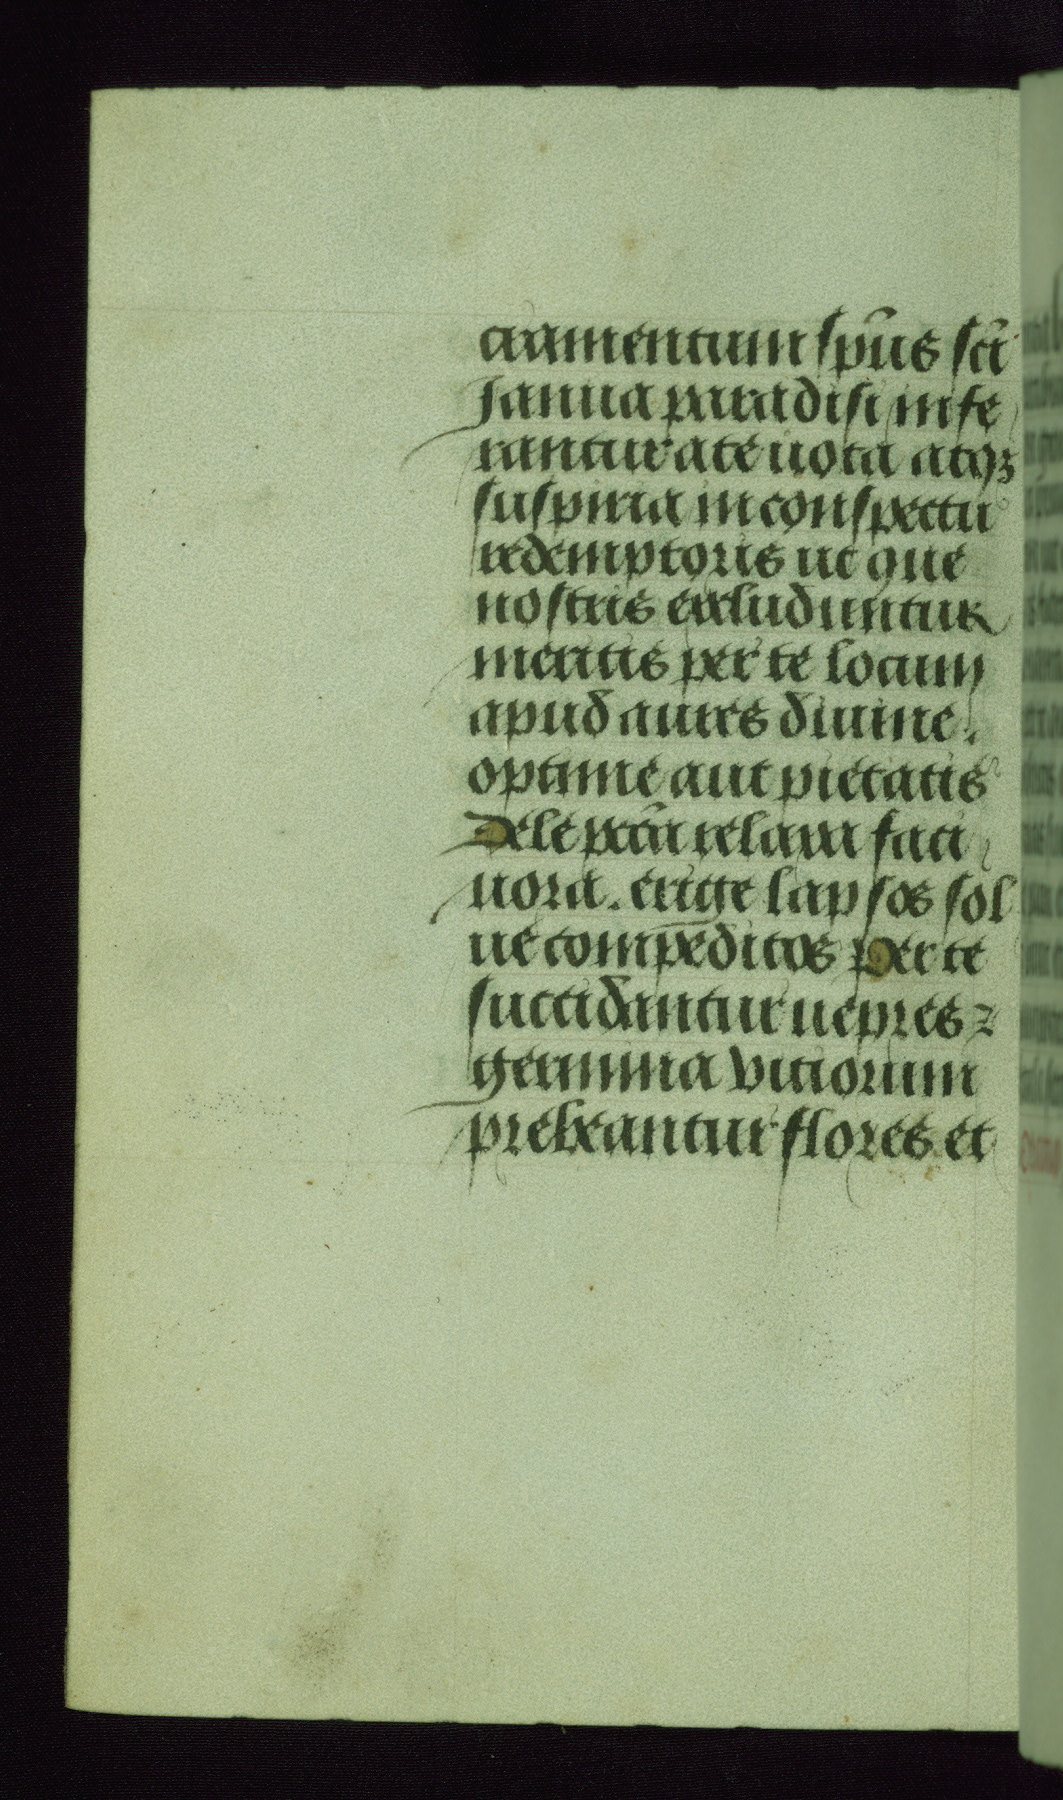 cramentum sp̄us sc̄i
Janua paradisi infe
rantur a te uota atqꝫ
suspiria in conspectu
redemptoris ut que
nostris excluduntur
meritis per te locum
apud aures diuine.
optime aut pietatis
Dele pctā relaxa faci
nora. erige lapsos sol
ue compeditos Per te
succidantur uepres ⁊
germina viciorum
prebeantur flores et